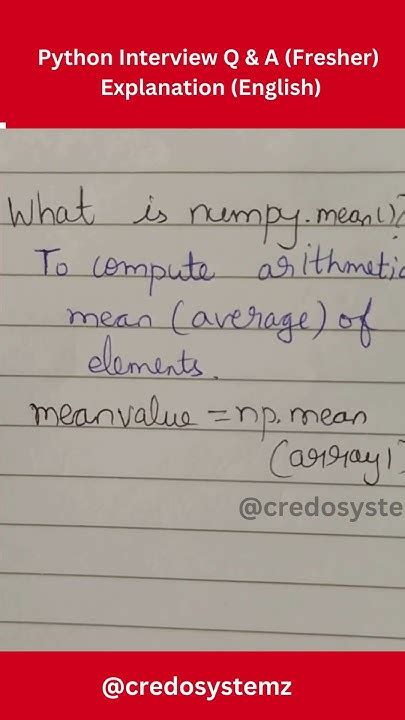 Python Interview Q & A (Fresher)
Explanation (English)
What is numpy.mean()?
To compute arithmetic
mean (average) of
elements.
meanvalue = np.mean
(array1)
@credosyste
@credosystemz